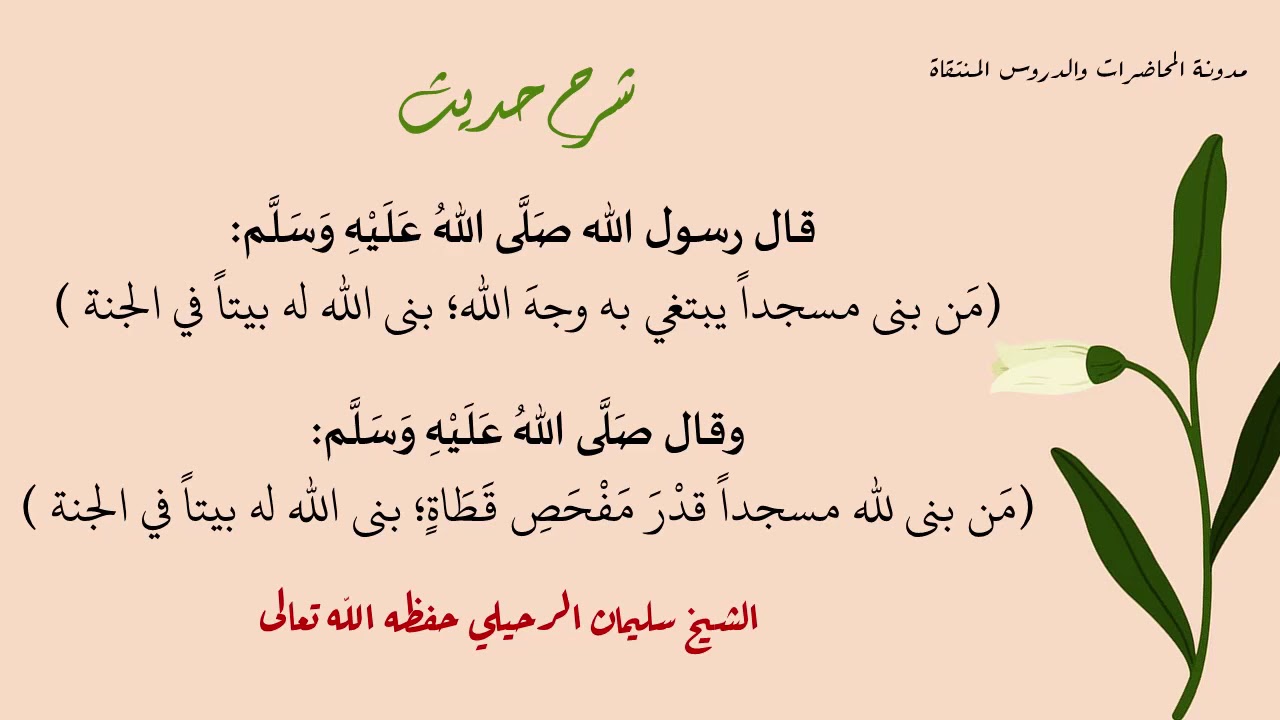 مدونة المحاضرات والدروس المنتقاة
شرح حديث
قال رسول الله صَلَّى اللهُ عَلَيْهِ وَسَلَّم:
(مَن بنى مسجداً يبتغي به وجهَ الله؛ بنى الله له بيتاً في الجنة )
وقال صَلَّى اللهُ عَلَيْهِ وَسَلَّم:
(مَن بنى لله مسجداً قدْرَ مَفْحَصِ قَطَاةٍ؛ بنى الله له بيتاً في الجنة )
الشيخ سليمان الرحيلي حفظه الله تعالى